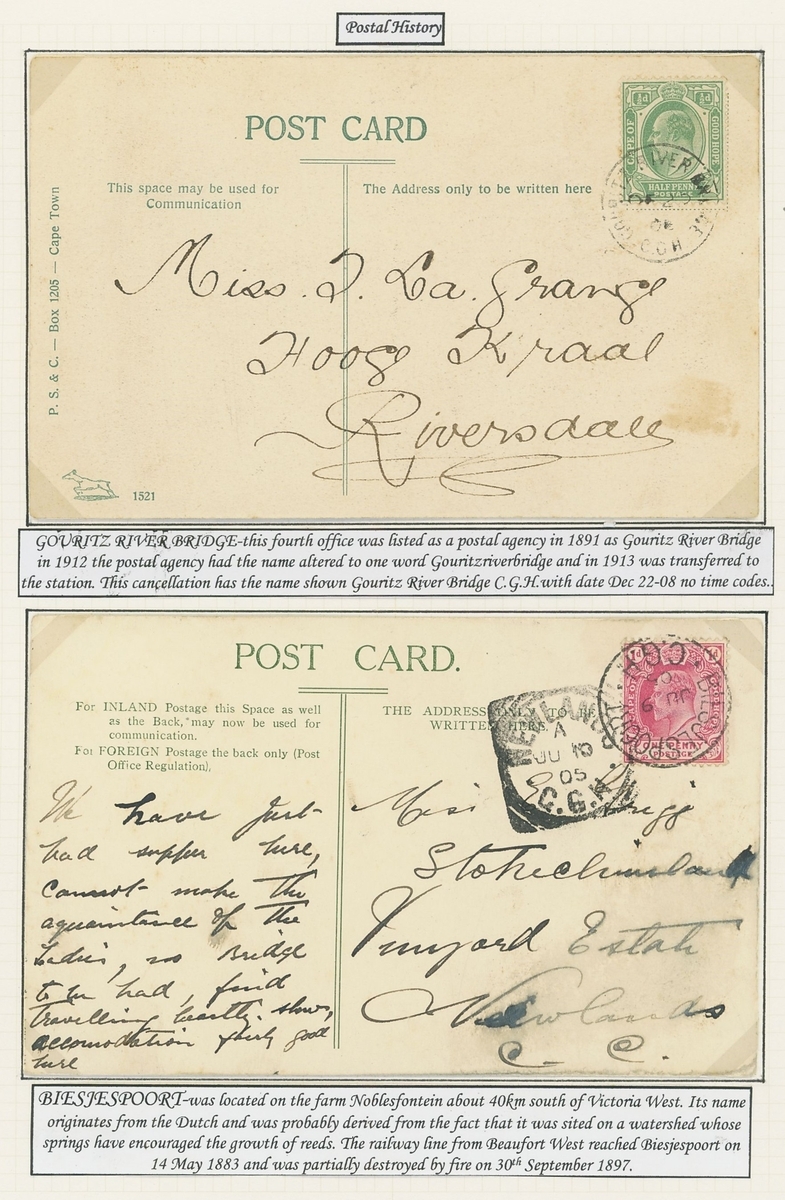 Postal History
POST CARD
This space may be used for
Communication
The Address only to be written here
P. S. & C. — Box 1205 — Cape Town
CAPE OF GOOD HOPE
HALF PENNY
POSTAGE
GOURITZ RIVER BRIDGE
C.G.H
Miss. J. La. Grange
Hooge Kraal
Riversdale
1521
GOURITZ RIVER BRIDGE-this fourth office was listed as a postal agency in 1891 as Gouritz River Bridge
in 1912 the postal agency had the name altered to one word Gouritzriverbridge and in 1913 was transferred to
the station. This cancellation has the name shown Gouritz River Bridge C.G.H.with date Dec 22-08 no time codes..
POST CARD.
For INLAND Postage this Space as well
as the Back, may now be used for
communication.
For FOREIGN Postage the back only (Post
Office Regulation),
THE ADDRESS ONLY TO BE
WRITTEN HERE.
NEWLANDS
A
JU 10
05
C.G.H
1d
ONE PENNY
POSTAGE
We have just
had supper here,
cannot make the
aquaintance of the
Ladies, no Bridge
to be had, find
travelling beastly slow,
accomodation fairly good
here
Miss
Vinyard Estate
Newlands
C. C.
BIESJESPOORT-was located on the farm Noblesfontein about 40km south of Victoria West. Its name
originates from the Dutch and was probably derived from the fact that it was sited on a watershed whose
springs have encouraged the growth of reeds. The railway line from Beaufort West reached Biesjespoort on
14 May 1883 and was partially destroyed by fire on 30th September 1897.